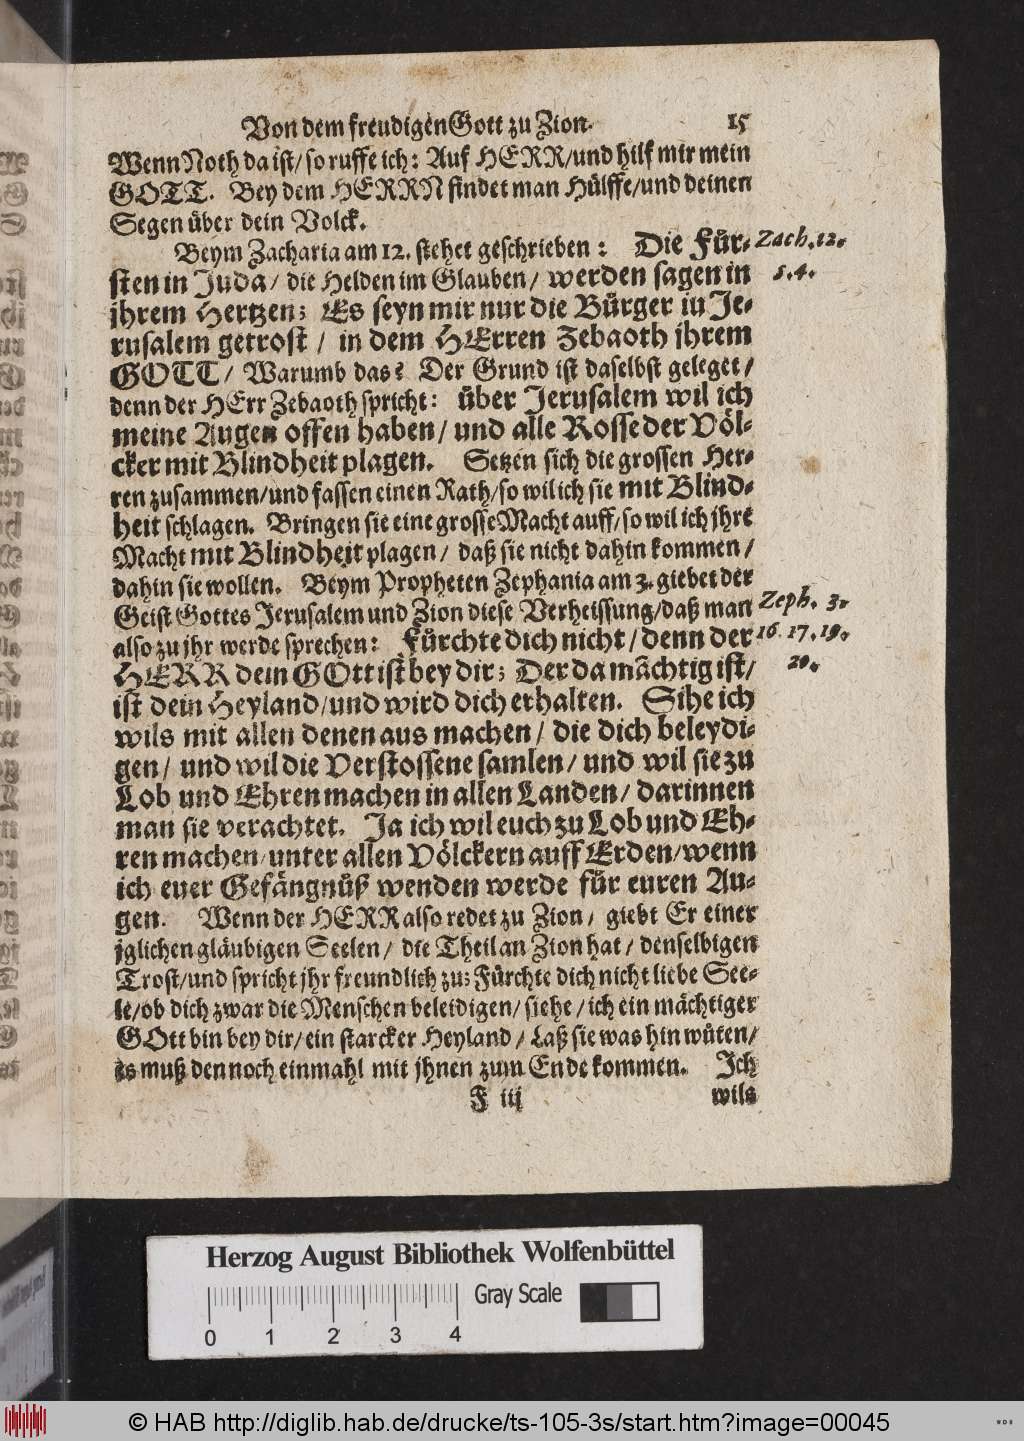 Von dem freudigen Gott zu Zion. 15
Wenn Noth da ist/ so ruffe ich: Auf HERR/und hilf mir mein
GOTT. Bey dem HERRN findet man Hülffe/und deinen
Segen über dein Volck.
Beym Zacharia am 12. stehet geschrieben: Die Für- Zach. 12.
sten in Juda/ die Helden im Glauben/ werden sagen in 5.4.
jhrem Hertzen; Es seyn mir nur die Bürger zu Je-
rusalem getrost/ in dem HErren Zebaoth jhrem
GOTT/ Warumb das? Der Grund ist daselbst geleget/
denn der HErr Zebaoth spricht: über Jerusalem wil ich
meine Augen offen haben/ und alle Rosse der Völ-
cker mit Blindheit plagen. Setzen sich die grossen Her-
ren zusammen/und fassen einen Rath/so wil ich sie mit Blind-
heit schlagen. Bringen sie eine grosse Macht auff/so wil ich jhre
Macht mit Blindheit plagen/ daß sie nicht dahin kommen/
dahin sie wollen. Beym Propheten Zephania am 3. giebet der
Geist Gottes Jerusalem und Zion diese Verheissung/daß man Zeph. 3.
also zu jhr werde sprechen: Fürchte dich nicht/denn der 16. 17. 19.
HERR dein GOtt ist bey dir; Der da mächtig ist/ 20.
ist dein Heyland/und wird dich erhalten. Sihe ich
wils mit allen denen aus machen/ die dich beleydi-
gen/ und wil die Verstossene samlen/ und wil sie zu
Lob und Ehren machen in allen Landen/ darinnen
man sie verachtet. Ja ich wil euch zu Lob und Eh-
ren machen/unter allen Völckern auff Erden/wenn
ich euer Gefängnüß wenden werde für euren Au-
gen. Wenn der HERR also redet zu Zion/ giebt Er einer
jglichen gläubigen Seelen/ die Theil an Zion hat/ denselbigen
Trost/und spricht jhr freundlich zu; Fürchte dich nicht liebe See-
le/ob dich zwar die Menschen beleidigen/ siehe/ ich ein mächtiger
GOtt bin bey dir/ein starcker Heyland/ Laß sie was hin wüten/
es muß dennoch einmahl mit jhnen zum Ende kommen. Ich
F iij wils
Herzog August Bibliothek Wolfenbüttel
Gray Scale
0 1 2 3 4
© HAB http://diglib.hab.de/drucke/ts-105-3s/start.htm?image=00045